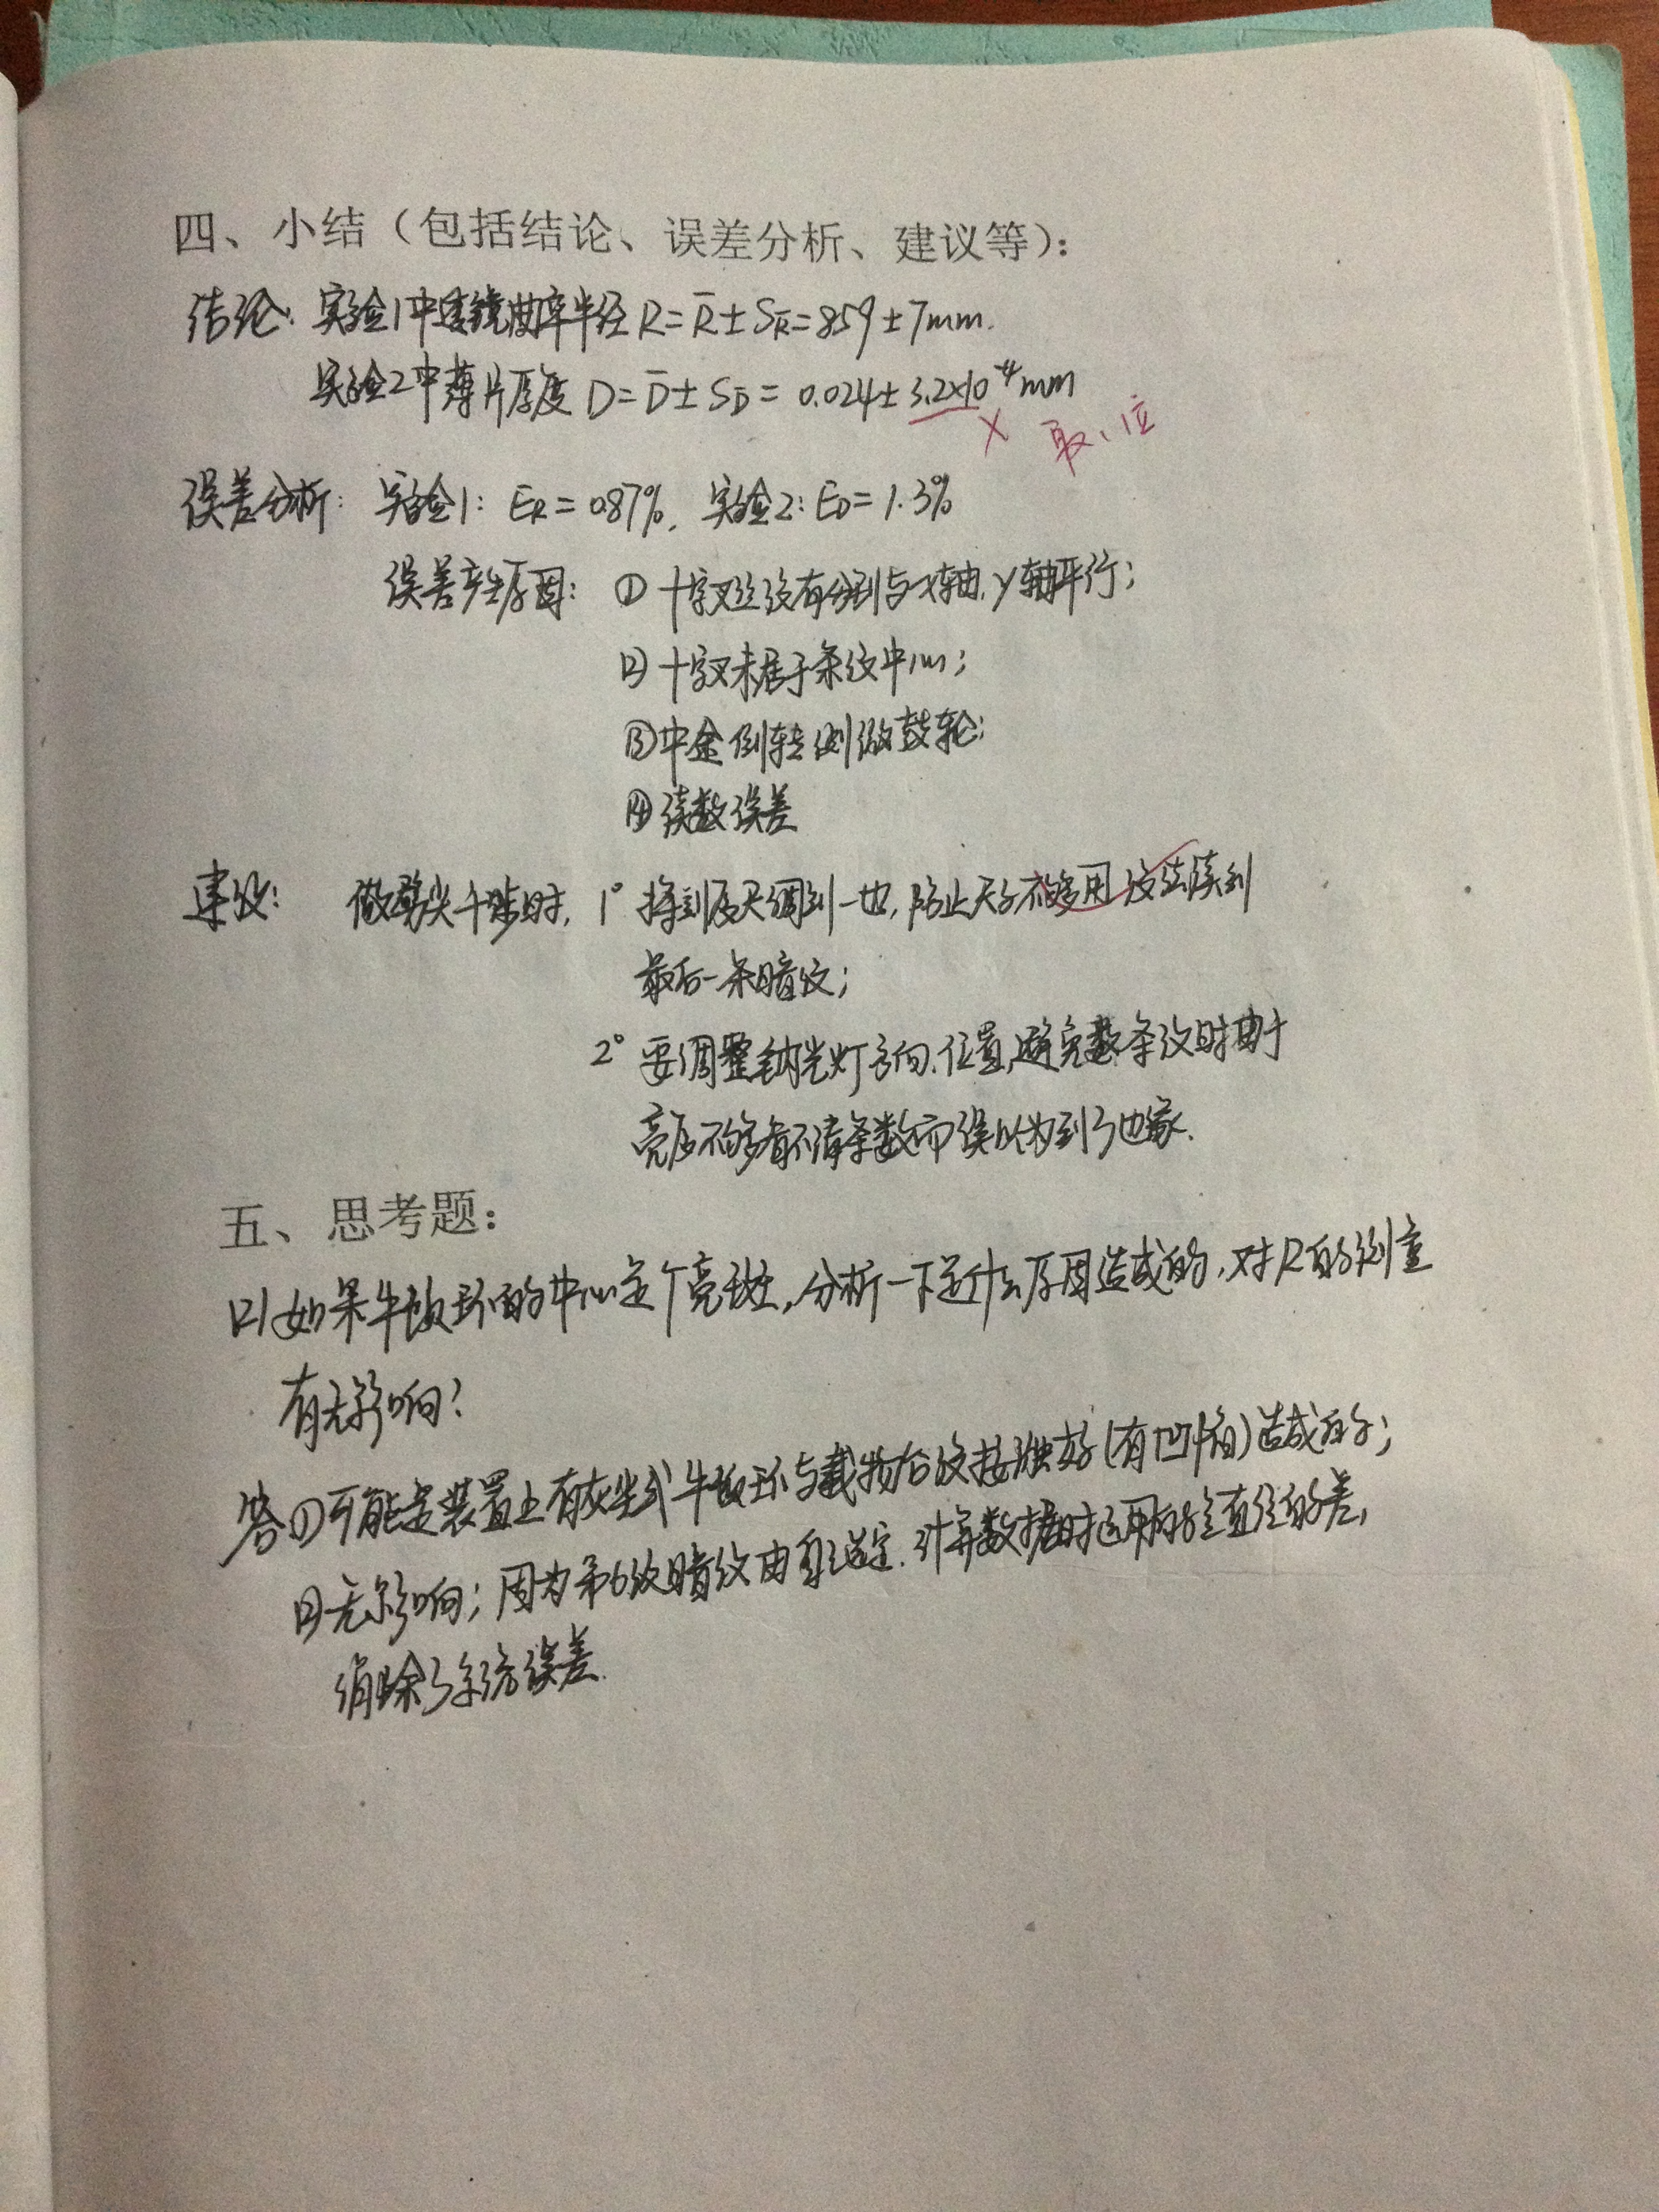 四、小结（包括结论、误差分析、建议等）：
结论：实验1中透镜曲率半径 R=R̄±S_R̄=859±7mm.
实验2中薄片厚度 D=D̄±S_D̄=0.024±3.2×10⁻⁴mm
× 取1位
误差分析：实验1：E_R=0.87%，实验2：E_D=1.3%
误差产生原因：① 十字叉丝没有分别与x轴、y轴平行；
② 十字叉未居于条纹中心；
③ 中途倒转测微鼓轮；
④ 读数误差
建议：做劈尖干涉时，1° 将刻度尺调到一边，防止尺子不够用没法读到
最后一条暗纹；
2° 要调整钠光灯方向、位置，避免数条纹时由于
亮度不够看不清条数而误以为到了边缘.
五、思考题：
(2)如果牛顿环的中心是个亮斑，分析一下是什么原因造成的，对R的测量
有无影响？
答①可能是装置上有灰尘或牛顿环与载物台没接触好(有凹陷)造成的；
②无影响；因为第6级暗纹由自己选定，计算数据时运用的是直径的差，
消除了系统误差.